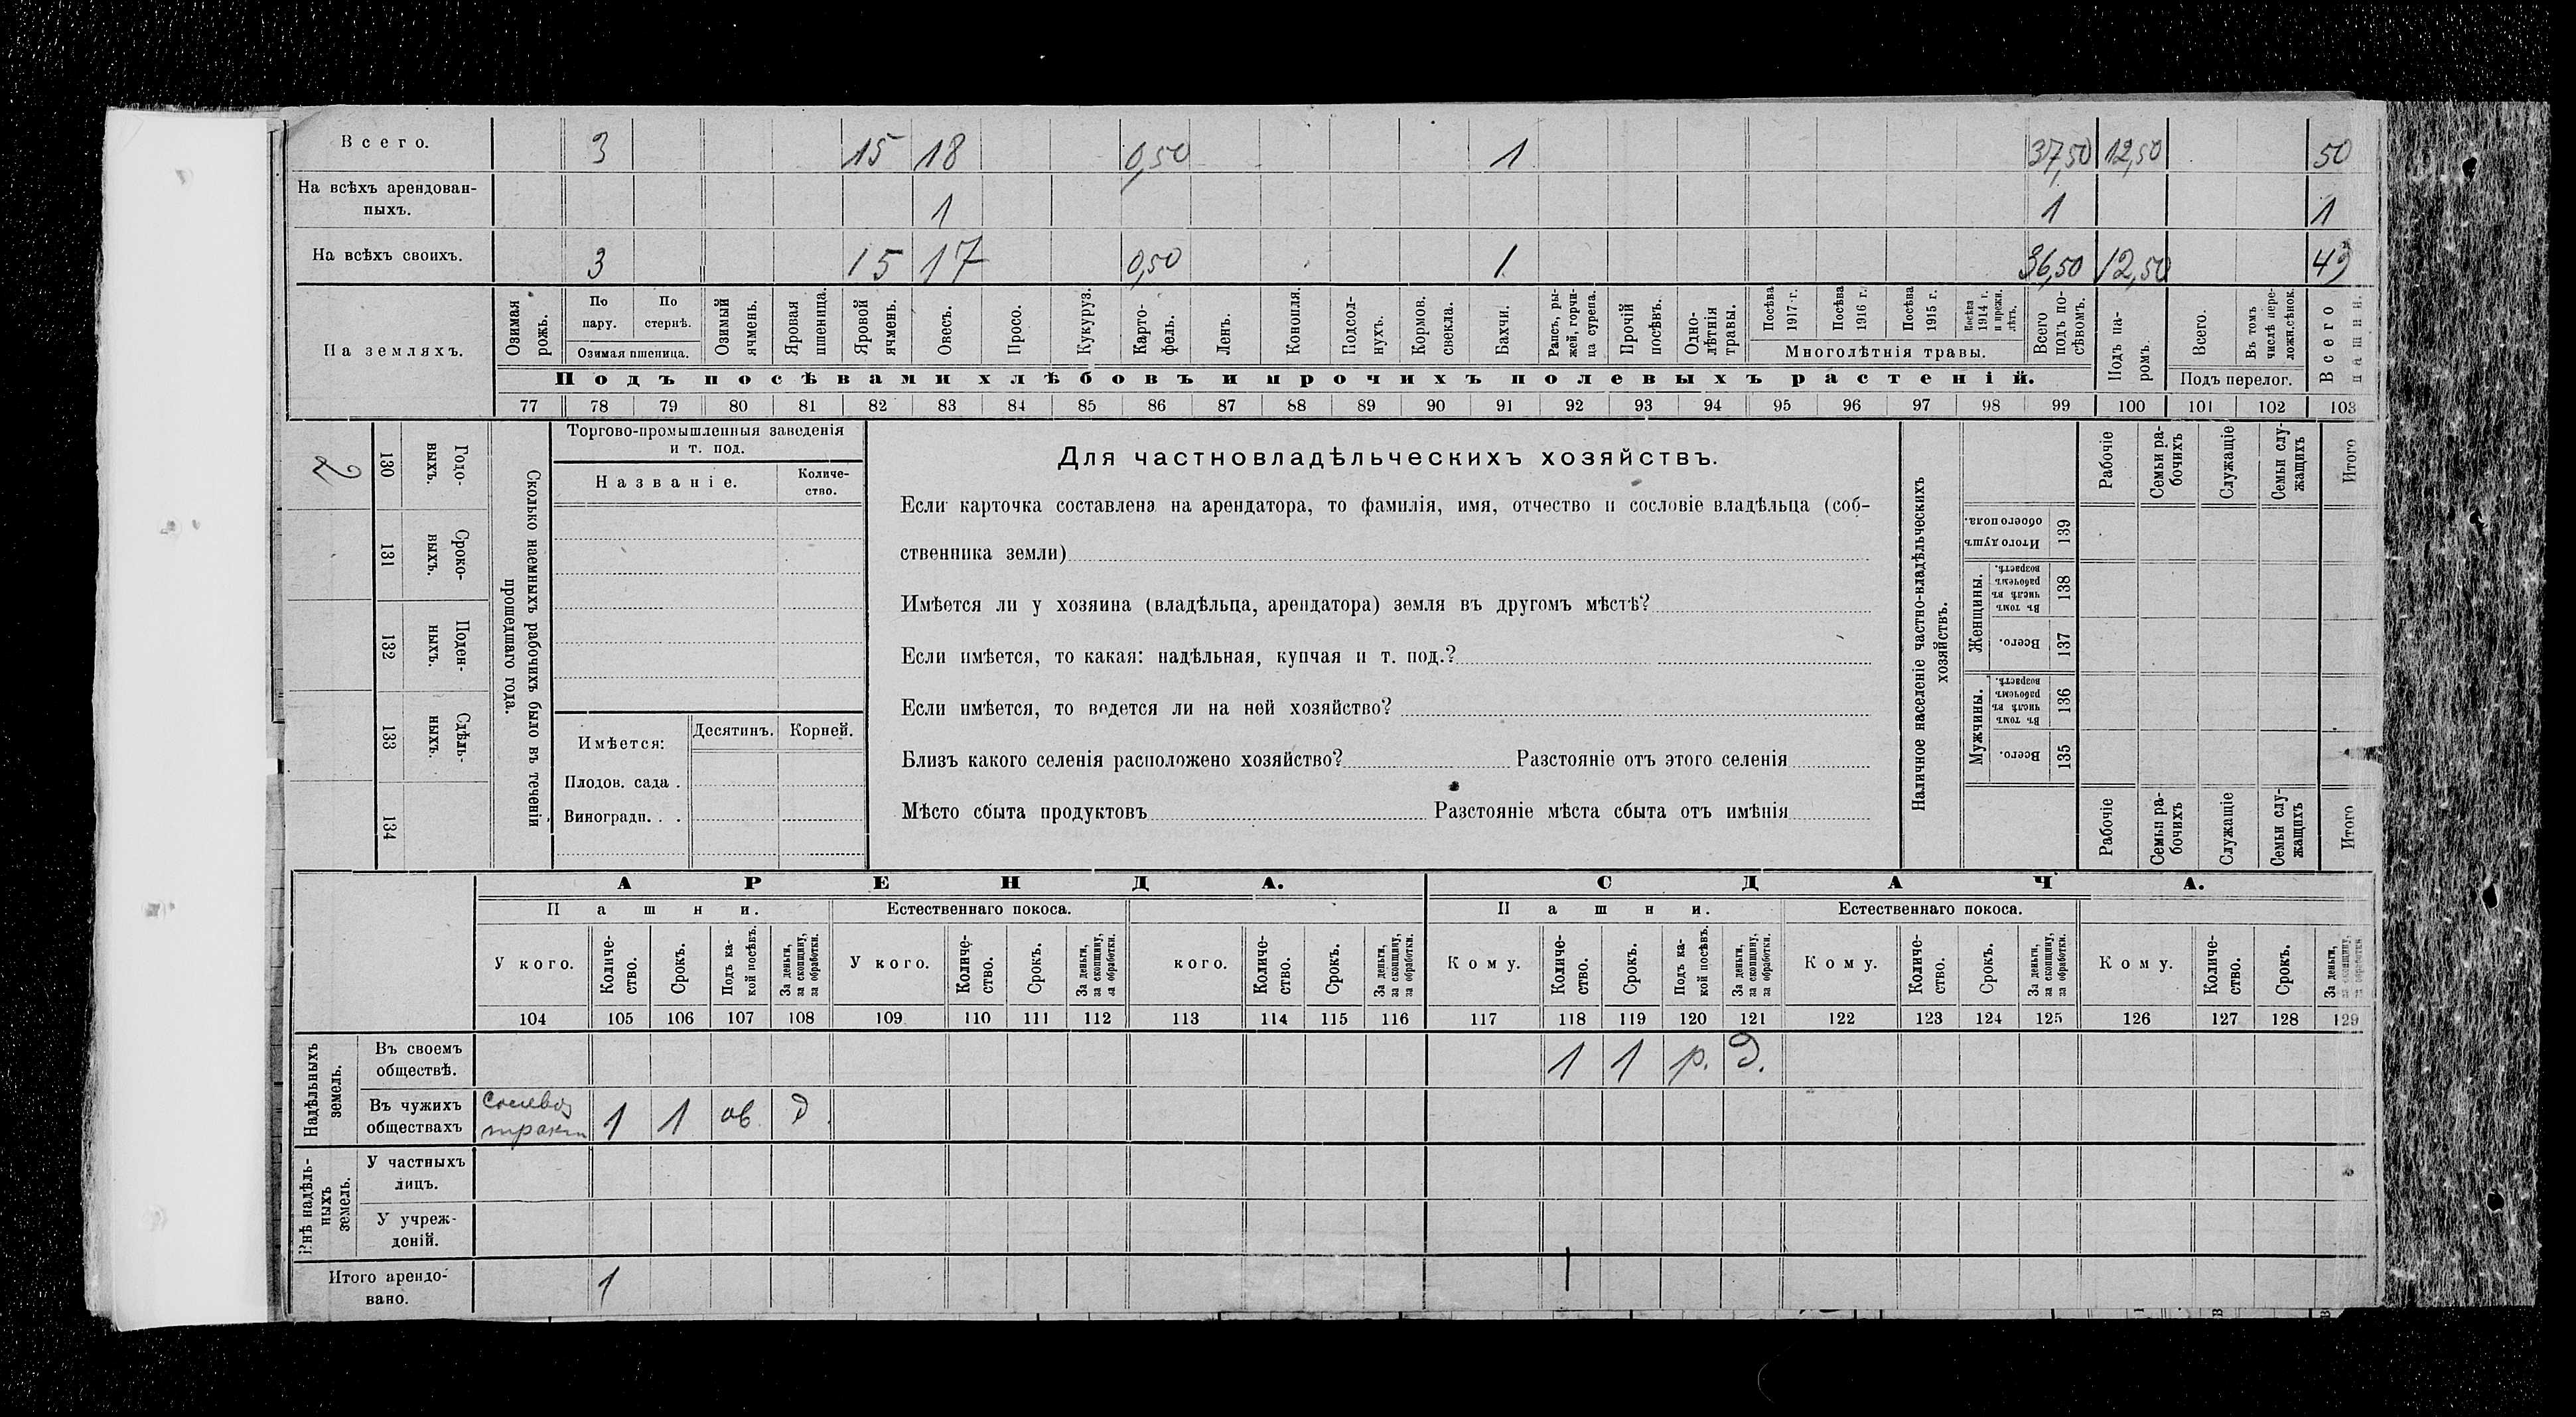 Всего. 3 15 18 0,50 1 37,50 12,50 50
На всѣхъ арендован-
ныхъ. 1 1 1
На всѣхъ своихъ. 3 15 17 0,50 1 36,50 12,50 49
На земляхъ.
Озимая рожь.
По пару.
По стернѣ.
Озимая пшеница.
Озимый ячмень.
Яровая пшеница.
Яровой ячмень.
Овесъ.
Просо.
Кукуруз.
Карто-
фель.
Ленъ.
Конопля.
Подсол-
нухъ.
Кормов. свекла.
Бахчи.
Рапсъ, ры-
жей, горчи-
ца сурепа.
Прочій посѣвъ.
Одно-
лѣтнія травы.
Посѣва 1917 г.
Посѣва 1916 г.
Посѣва 1915 г.
Посѣва 1914 г. и прежн. лѣтъ.
Многолѣтнія травы.
Всего подъ по-
сѣвомъ.
Подъ па-
ромъ.
Всего.
Въ томъ числѣ пере-
ложн.сѣнок.
Подъ перелог.
Всего пашни.
Подъ посѣвами хлѣбовъ и прочихъ полевыхъ растеній.
77 78 79 80 81 82 83 84 85 86 87 88 89 90 91 92 93 94 95 96 97 98 99 100 101 102 103
2
130 Годо-
выхъ.
131 Сроко-
выхъ.
132 Поден-
ныхъ.
133 Сдѣль-
ныхъ.
134
Сколько наемныхъ рабочихъ было въ теченіи
прошедшаго года.
Торгово-промышленныя заведенія
и т. под.
Названіе.
Количе-
ство.
Имѣется: Десятинъ. Корней.
Плодов. сада .
Виноградн. . .
Для частновладѣльческихъ хозяйствъ.
Если карточка составлена на арендатора, то фамилія, имя, отчество и сословіе владѣльца (соб-
ственника земли)
Имѣется ли у хозяина (владѣльца, арендатора) земля въ другомъ мѣстѣ?
Если имѣется, то какая: надѣльная, купчая и т. под.?
Если имѣется, то ведется ли на ней хозяйство?
Близъ какого селенія расположено хозяйство? Разстояніе отъ этого селенія
Мѣсто сбыта продуктовъ Разстояніе мѣста сбыта отъ имѣнія
Наличное населеніе частно-владѣльческихъ
хозяйствъ.
Рабочіе
Семьи ра-
бочихъ
Служащіе
Семьи слу-
жащихъ
Итого
Итого душъ обоего пола. 139
Женщины.
Въ томъ числѣ въ рабочемъ возрастѣ. 138
Всего. 137
Мужчины.
Въ томъ числѣ въ рабочемъ возрастѣ. 136
Всего. 135
Рабочіе
Семьи ра-
бочихъ
Служащіе
Семьи слу-
жащихъ
Итого
АРЕНДА. СДАЧА.
Пашни. Естественнаго покоса. Пашни. Естественнаго покоса.
У кого.
Количе-
ство.
Срокъ.
Подъ ка-
кой посѣвъ.
За деньги, за скопщину, за обработки.
У кого.
Количе-
ство.
Срокъ.
За деньги, за скопщину, за обработки.
кого.
Количе-
ство.
Срокъ.
За деньги, за скопщину, за обработки.
Кому.
Количе-
ство.
Срокъ.
Подъ ка-
кой посѣвъ.
За деньги, за скопщину, за обработки.
Кому.
Количе-
ство.
Срокъ.
За деньги, за скопщину, за обработки.
Кому.
Количе-
ство.
Срокъ.
За деньги, за скопщину, за обработки
104 105 106 107 108 109 110 111 112 113 114 115 116 117 118 119 120 121 122 123 124 125 126 127 128 129
Надѣльныхъ
земель.
Въ своемъ
обществѣ. 1 1 р. д.
Въ чужихъ
обществахъ тракт 1 1 ов. д.
Внѣ надѣль-
ныхъ
земель.
У частныхъ
лицъ.
У учреж-
деній.
Итого арендо-
вано. 1 1